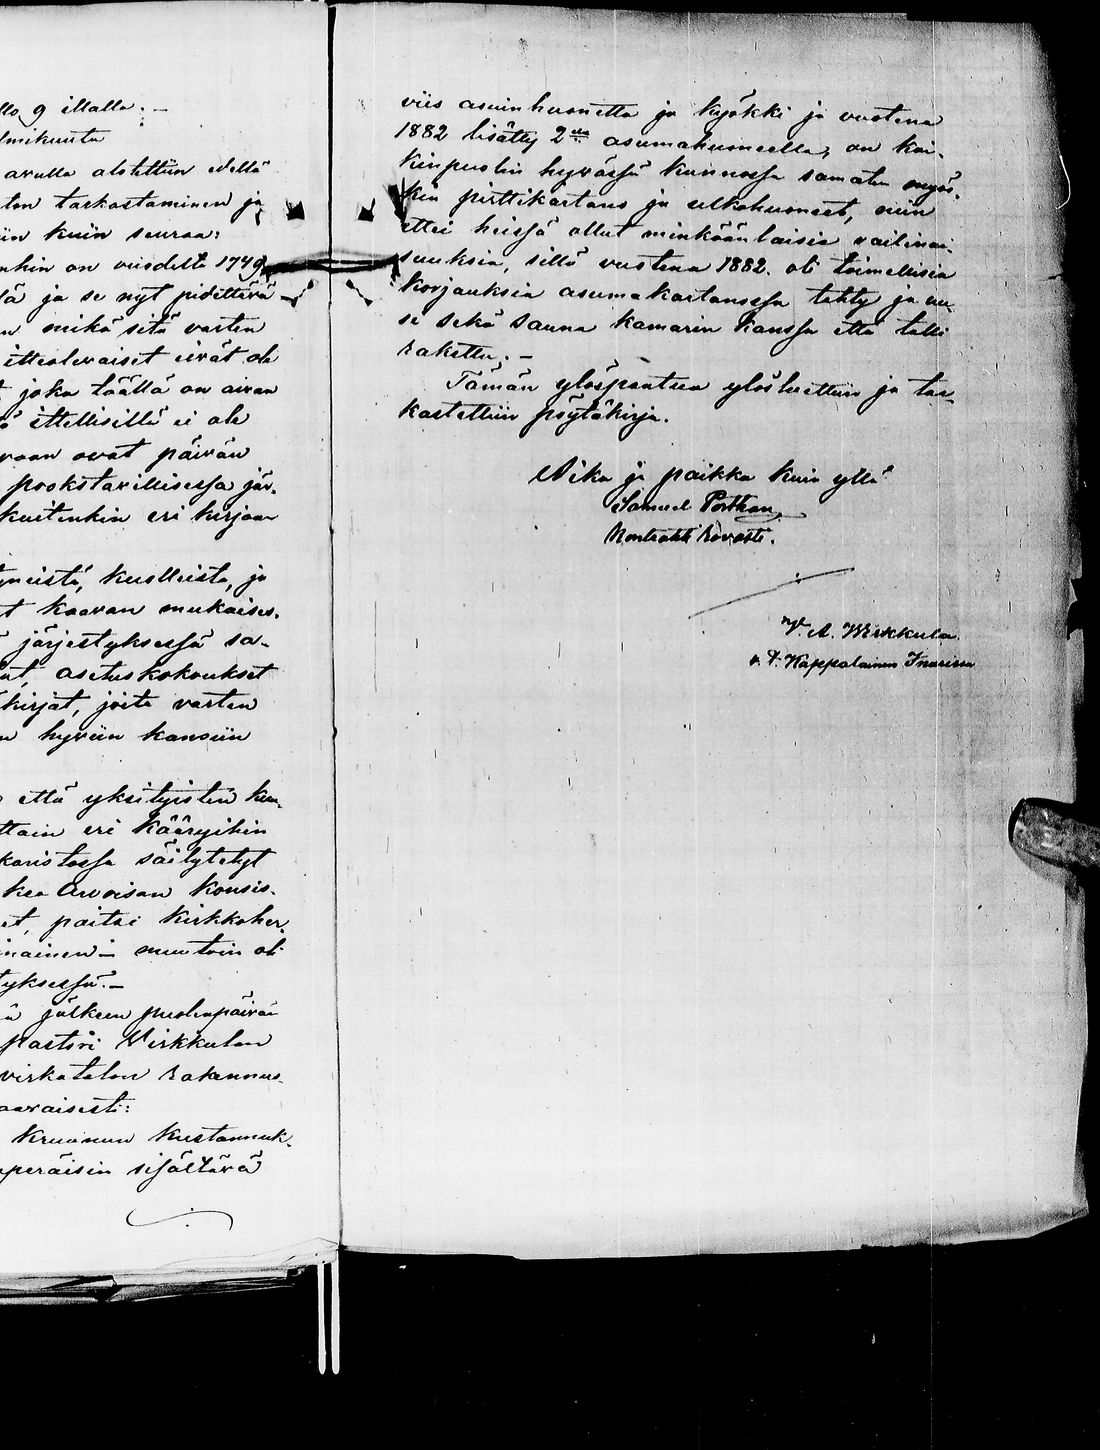 llo 9 illalla. —
lmikuuta
avulla alotettiin edellä
ton tarkastaminen ja
iin kuin seuraa:
nhin on vuodelta 1749
lä ja se nyt pidettävä —
n mikä sitä varten
itteolevaiset eivät ole
joka täällä on aivan
ittellisillä ei ole
vaan ovat päivän
pookstavillisessa jär-
kuitenkin eri kirjaan
yneistä, kuolleista, ja
t kaavan mukaises-
järjestyksessä sa-
ut, asetuskokoukset
kirjat, joita varten
n hyviin kansiin
että yksityisten kuu-
ttain eri kääryihin
karistossa säilytetyt
kea Arvoisan Konsis-
et, paitsi Kirkkoher-
inainen — muutoin oli
tyksessä. —
ä jälkeen puolenpäivän
pastori Wirkkulan
virkatalon rakennus-
aavaisesti:
Kruunun kustannuk-
uperäisin sisältävä
viis asuinhuonetta ja kyökki ja vuotena
1882 lisätty 2:lla asumahuoneella, on kai-
kinpuolin hyvässä kunnossa samaten myös-
kin pirttikartano ja ulkohuoneet, niin
ettei heissä ollut minkäänlaisia vaillinai-
suuksia, sillä vuotena 1882. oli toimellisia
korjauksia asumakartanossa tehty ja uu-
si sekä sauna kamarin kanssa että talli
rakettu. —
Tämän ylöspantua ylösluettiin ja tar-
kastettiin pöytäkirja.
Aika ja paikka kuin yllä
Samuel Porthan
Kontrahti Rovasti.
A. Wirkkula
v. t. Kappalainen Inarissa